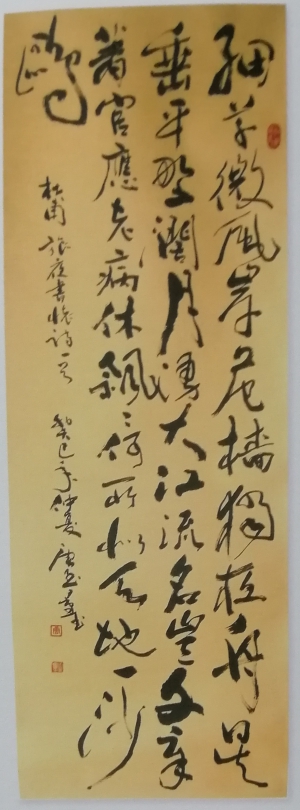 細草微風岸危檣獨夜舟星
垂平野闊月湧大江流名豈文章
著官應老病休飄〻何所似天地一沙
鷗
杜甫旅夜書懷詩一首
癸巳年仲夏